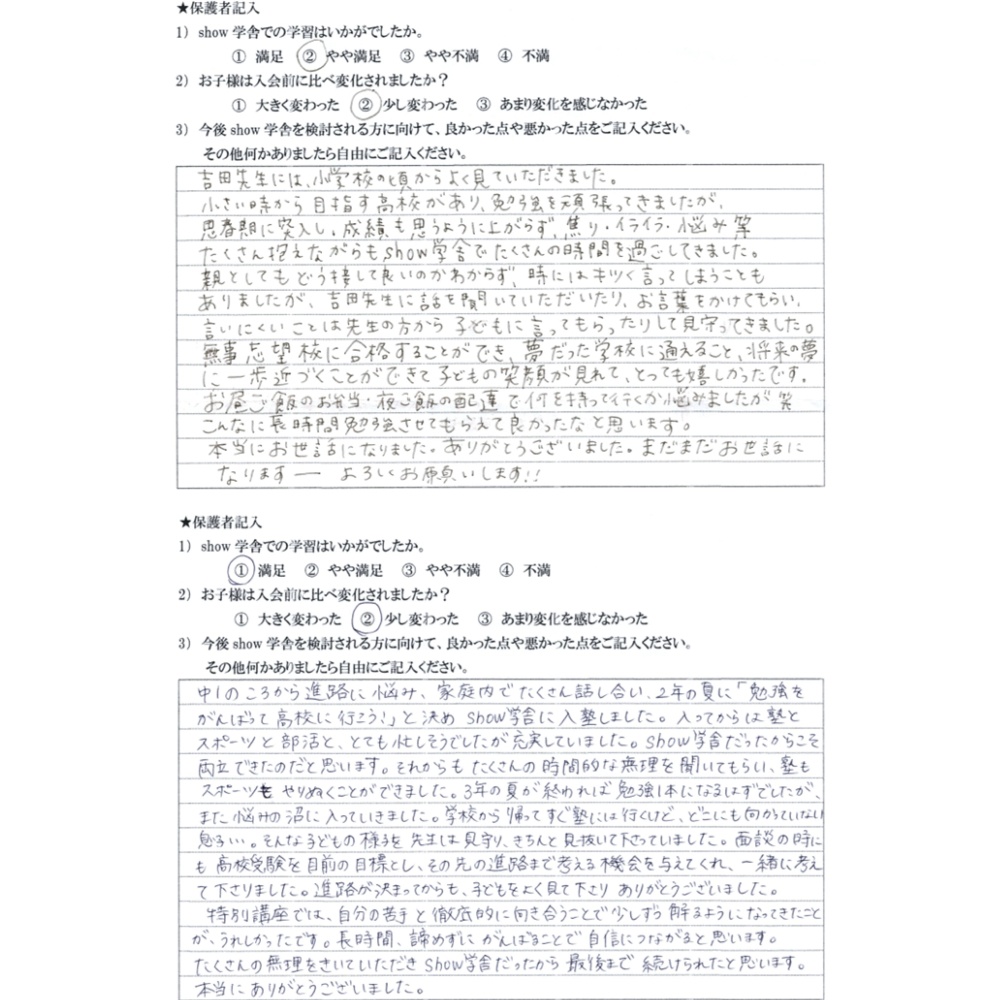 ★保護者記入
1) show 学舎での学習はいかがでしたか。
① 満足 ② やや満足 ③ やや不満 ④ 不満
2) お子様は入会前に比べ変化されましたか？
① 大きく変わった ② 少し変わった ③ あまり変化を感じなかった
3) 今後 show 学舎を検討される方に向けて、良かった点や悪かった点をご記入ください。
その他何かありましたら自由にご記入ください。
吉田先生には、小学校の頃からよく見ていただきました。
小さい時から目指す高校があり、勉強を頑張ってきましたが、
思春期に突入し、成績も思うように上がらず、焦り・イライラ・悩み等
たくさん抱えながらも、show学舎でたくさんの時間を過ごしてきました。
親としてもどう接して良いのかわからず、時にはキツく言ってしまうことも
ありましたが、吉田先生に話を聞いていただいたり、お言葉をかけてもらい、
言いにくいことは先生の方から子どもに言ってもらったりして見守ってきました。
無事志望校に合格することができ、夢だった学校に通えること、将来の夢
に一歩近づくことができて子どもの笑顔が見れて、とっても嬉しかったです。
お昼ご飯のお弁当・夜ご飯の配達で何を持って行くか悩みましたが笑
こんなに長時間勉強させてもらえて良かったなと思います。
本当にお世話になりました。ありがとうございました。まだまだお世話に
なりますー よろしくお願いします!!
★保護者記入
1) show 学舎での学習はいかがでしたか。
① 満足 ② やや満足 ③ やや不満 ④ 不満
2) お子様は入会前に比べ変化されましたか？
① 大きく変わった ② 少し変わった ③ あまり変化を感じなかった
3) 今後 show 学舎を検討される方に向けて、良かった点や悪かった点をご記入ください。
その他何かありましたら自由にご記入ください。
中1のころから進路に悩み、家庭内でたくさん話し合い、2年の夏に「勉強を
がんばって高校に行こう!」と決めshow学舎に入塾しました。入ってからは塾と
スポーツと部活と、とても忙しそうでしたが充実していました。show学舎だったからこそ
両立できたのだと思います。それからもたくさんの時間的な無理を聞いてもらい、塾も
スポーツもやりぬくことができました。3年の夏が終われば勉強1本になるはずでしたが、
また悩みの沼に入っていきました。学校から帰ってすぐ塾には行くけど、どこにも向かっていない
息子…。そんな子どもの様子を先生は見守り、きちんと見抜いて下さっていました。面談の時に
も高校受験を目前の目標とし、その先の進路まで考える機会を与えてくれ、一緒に考え
て下さりました。進路が決まってからも、子どもをよく見て下さりありがとうございました。
特別講座では、自分の苦手と徹底的に向き合うことで少しずつ解るようになってきたこと
が、うれしかったです。長時間、諦めずにがんばることで自信につながると思います。
たくさんの無理をきいていただきshow学舎だったから最後まで続けられたと思います。
本当にありがとうございました。